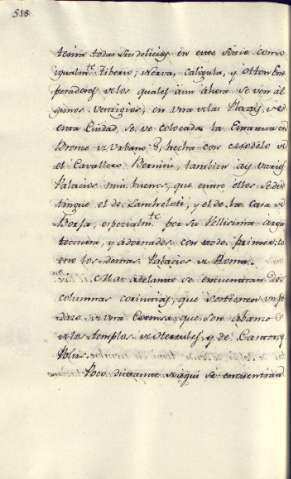 518
tenia todas sus delicias en este sitio como
igualm.te Tiberio, Nerva, Caligula, y Otton Em
peradores de los quales aun ahora se ven al
gunos vestigios, en una de las Plazas, de
esta Ciudad, se ve colocada la Estatua en
Bronce de Urbano 8. hecha con el modelo
el Cavallero Bernini, tambien ay varios
Palacios mui buenos, que entre ellos se dis
tingue el de Lanchelotti, y el de la Casa de
Borja, especialm.te por su bellisima arqui
tectura, y adornados con todo primor
con los demas Palacios de Roma.
Mas adelante se encuentran dos
columnas corintias, que sostienen un pe
dazo de una Cornisa, que son
de los Templos de Hercules, y de Castor, y
Polux.
Poco distante de aqui se encuentran